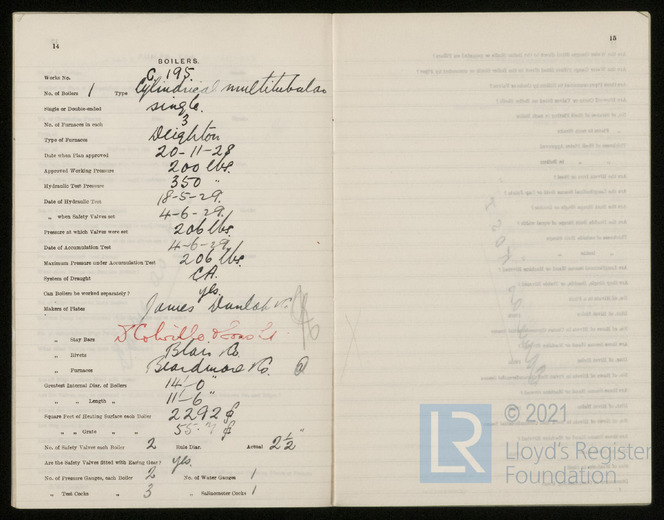 14
BOILERS.
Works No. C. 195.
No. of Boilers 1 Type Cylindrical multitubular
Single or Double-ended single.
No. of Furnaces in each 3
Type of Furnaces Deighton
Date when Plan approved 20-11-28
Approved Working Pressure 200 lbs.
Hydraulic Test Pressure 350 "
Date of Hydraulic Test 18-5-29.
„ when Safety Valves set 4-6-29.
Pressure at which Valves were set 206 lbs.
Date of Accumulation Test 4-6-29.
Maximum Pressure under Accumulation Test 206 lbs.
System of Draught
Can Boilers be worked separately? yes.
Makers of Plates James Dunlop
„ Stay Bars D Colville & Sons Ld
„ Rivets Blair Co.
„ Furnaces Beardmore & Co.
Greatest Internal Diar. of Boilers 14'-0"
„ „ Length „ 11'-6"
Square Feet of Heating Surface each Boiler 2292
„ „ Grate „ „
No. of Safety Valves each Boiler 2 Rule Diar. Actual 2½"
Are the Safety Valves fitted with Easing Gear? yes.
No. of Pressure Gauges, each Boiler 2 No. of Water Gauges 1
„ Test Cocks „ 3 „ Salinometer Cocks 1
15
LR
© 2021
Lloyd's Register
Foundation